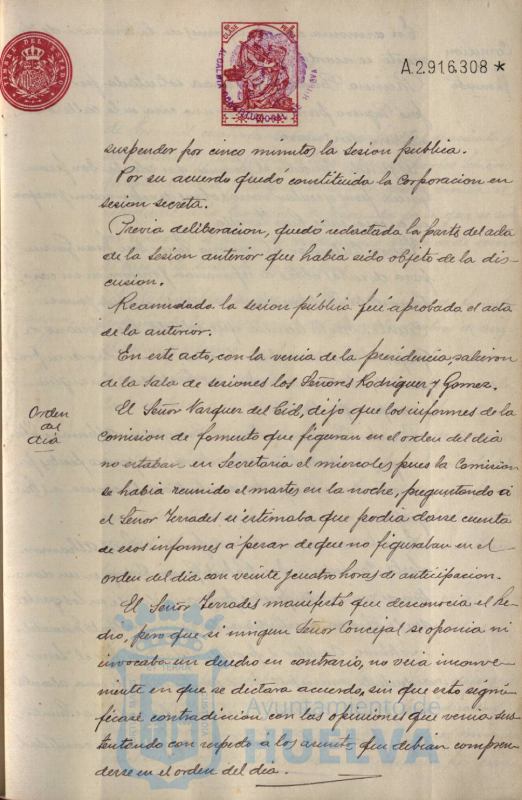 TIMBRE DEL ESTADO
A.2.916.308 *
suspender por cinco minutos la sesion publica.
Por su acuerdo quedó constituida la Corporacion en
sesion secreta.
Previa deliberacion, quedó redactada la parte del acta
de la sesion anterior que habia sido objeto de la dis-
cusion.
Reanudada la sesion pública fué aprobada el acta
de la anterior.
En este acto, con la venia de la presidencia, salieron
de la Sala de sesiones los Señores Rodriguez y Gomez.
Orden
del
dia
El Señor Vazquez del Cid, dijo que los informes de la
Comision de fomento que figuran en el orden del dia
no estaban en Secretaria el miercoles pues la Comision
se habia reunido el martes en la noche, preguntando á
el Señor Terrades si estimaba que podia darse cuenta
de esos informes á pesar de que no figuraban en el
orden del dia con veinte y cuatro horas de anticipacion.
El Señor Terrades manifestó que desconocia el he-
cho, pero que si ningun Señor Concejal se oponia ni
invocaba un derecho en contrario, no veia inconve-
niente en que se dictara acuerdo, sin que esto signi-
ficase contradiccion con las opiniones que venia sus-
tentando con respecto a los asuntos que debian compren-
derse en el orden del dia.
Ayuntamiento de
HUELVA